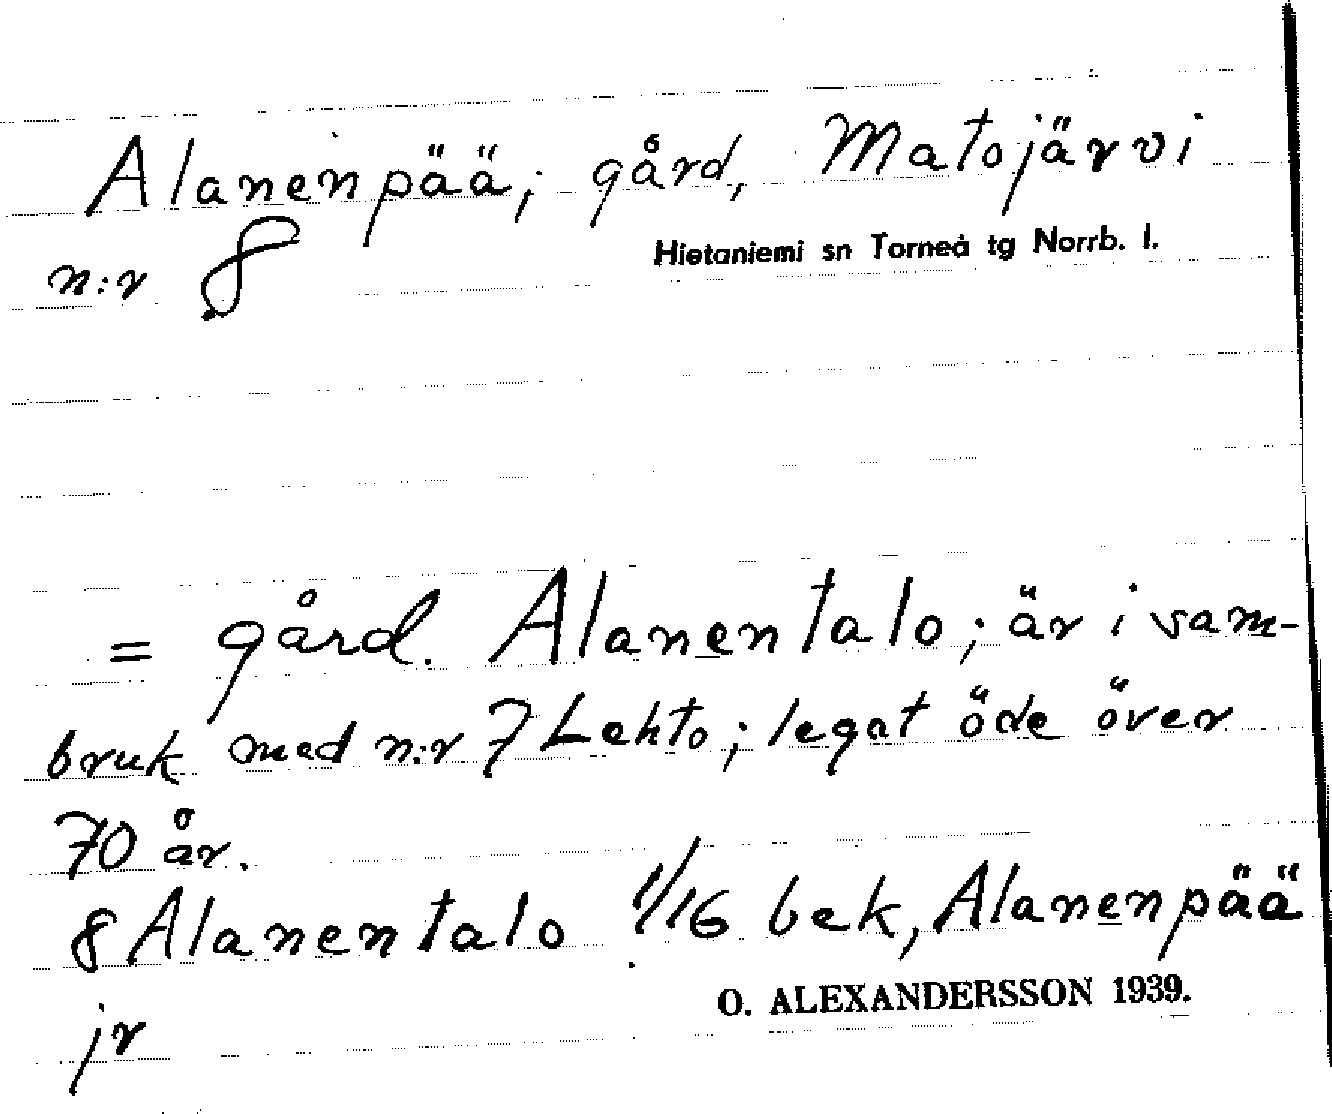 Alanenpää; gård, Matojärvi
n:r 8
Hietaniemi sn Torneå tg Norrb. l.
= gård. Alanentalo; är i sam-
bruk med n:r 7 Lehto; legat öde över
70 år.
8 Alanentalo 1/16 bek, Alanenpää
jr
O. ALEXANDERSSON 1939.